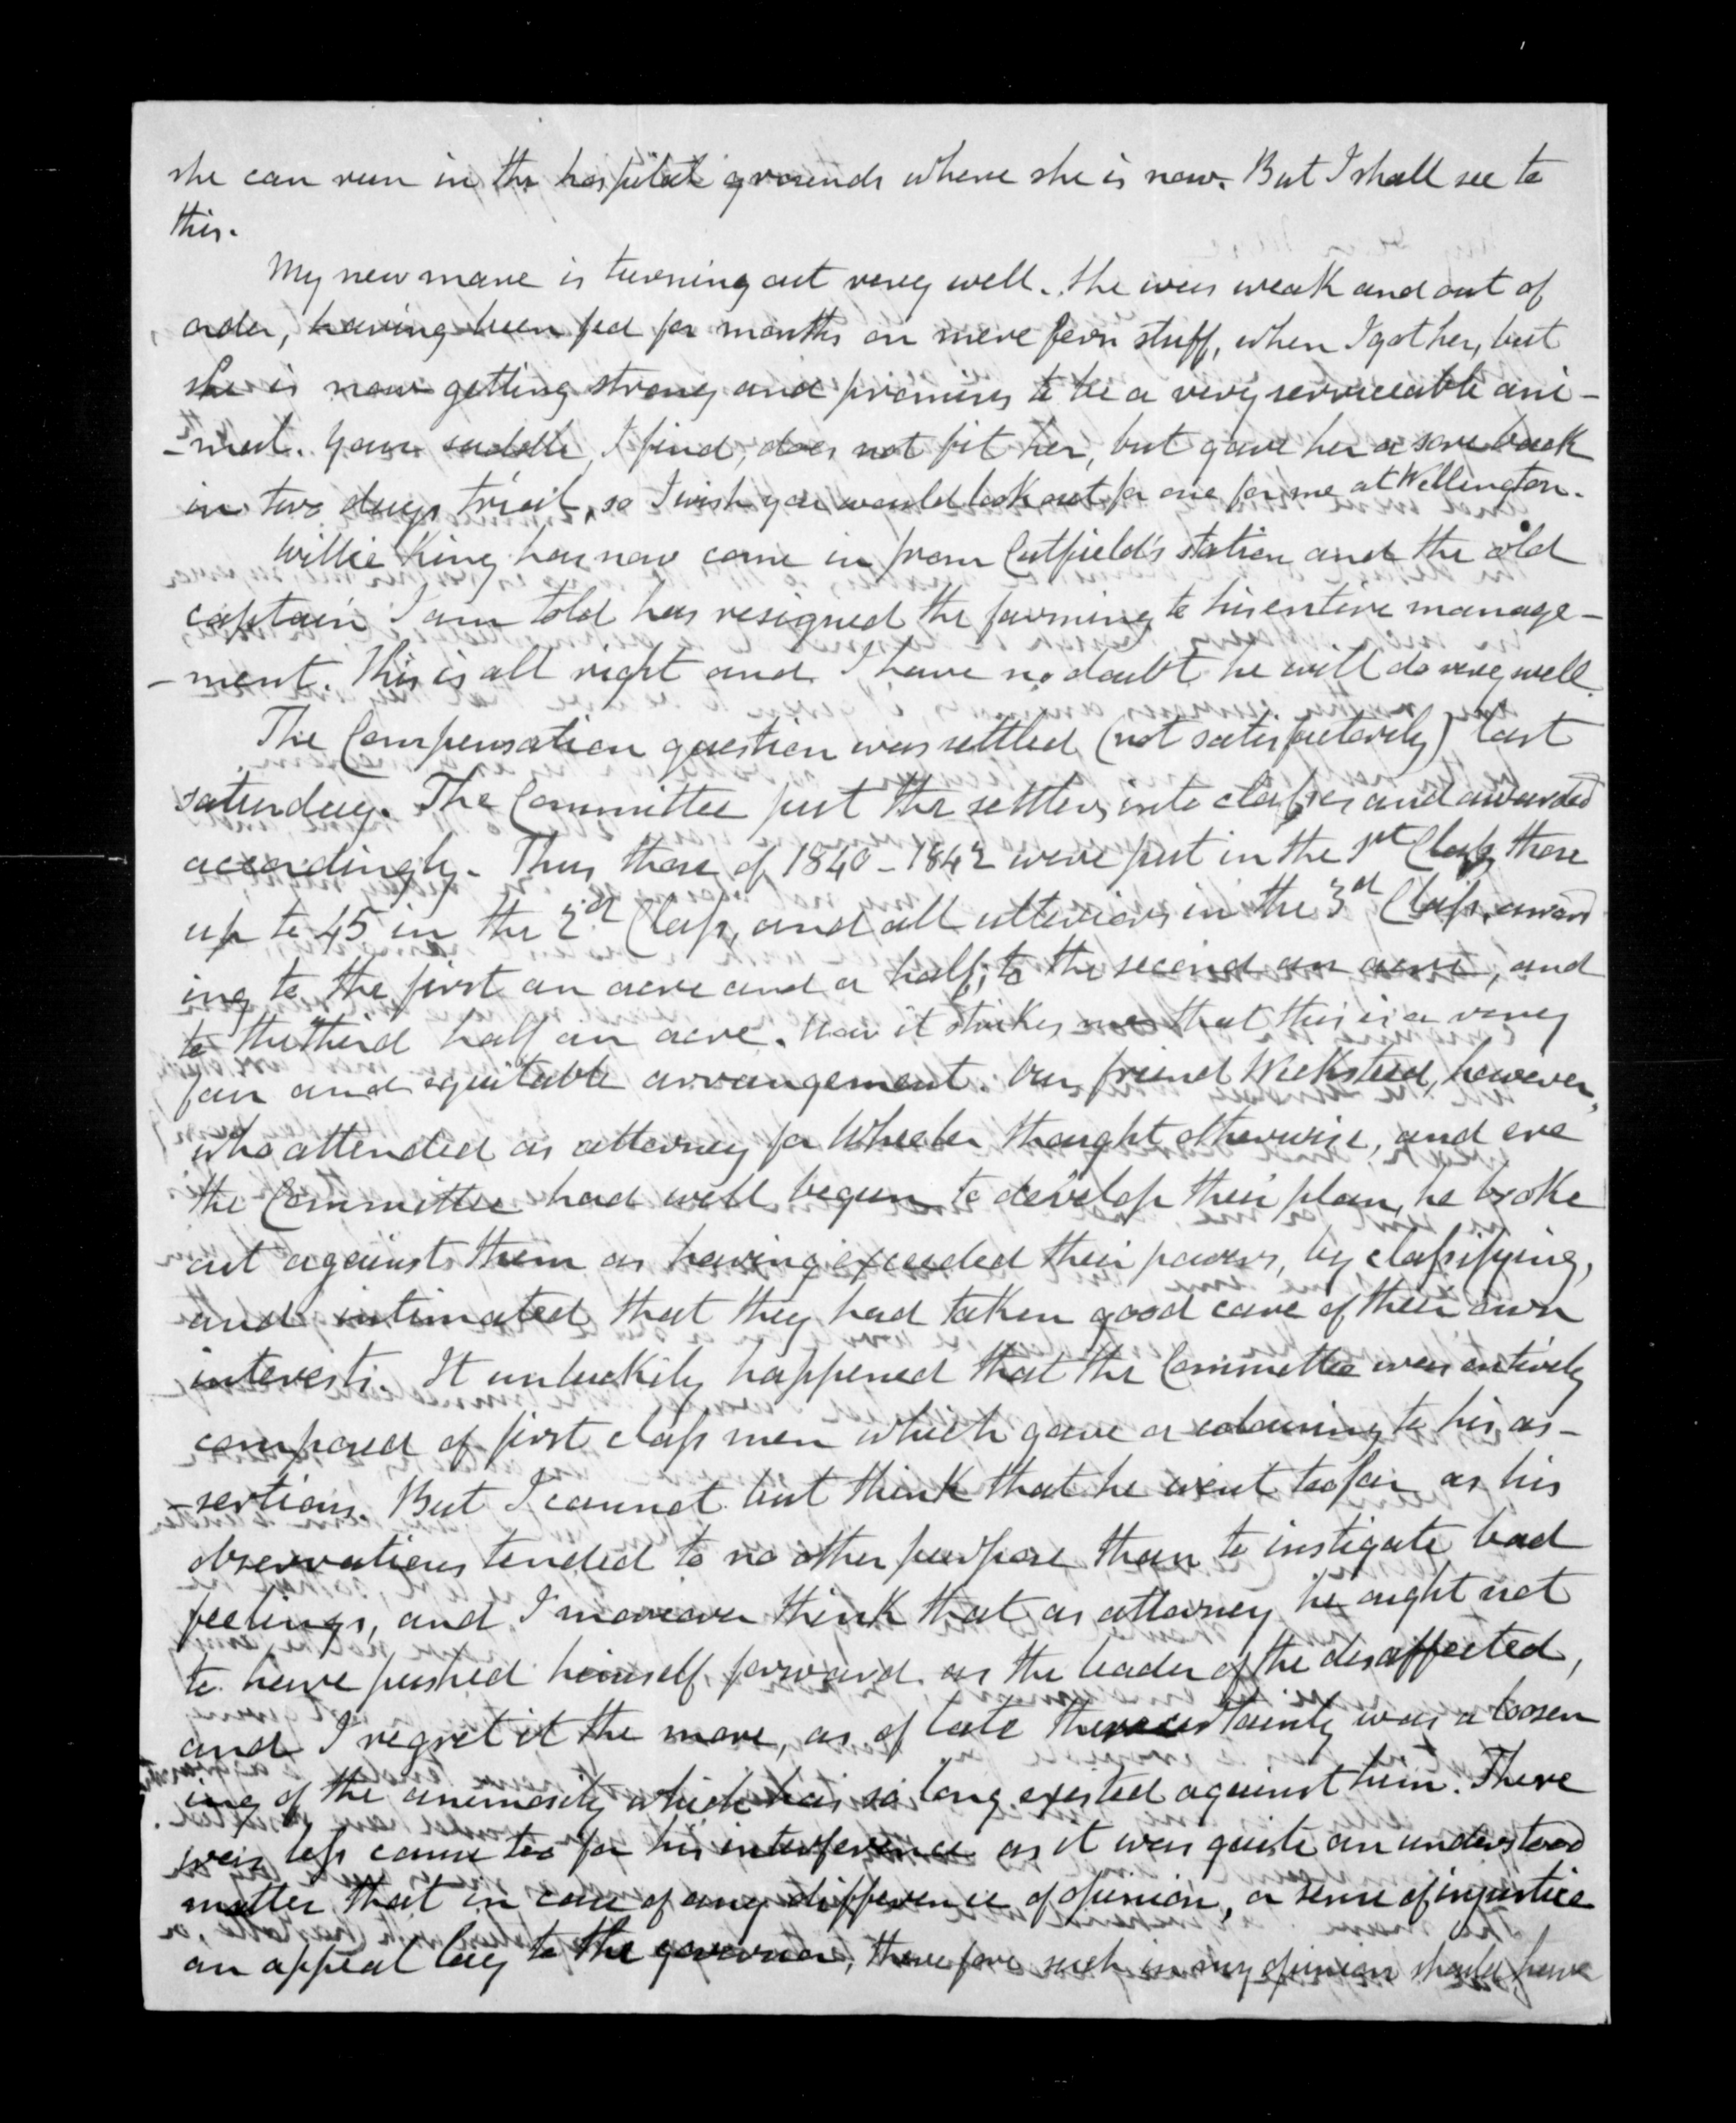 she can run in the hospital grounds where she is now. But I shall see to
this.
My new mare is turning out very well. She was weak and out of
order, having been fed for months on mere fern stuff, when I got her, but
she is now getting strong and promises to be a very serviceable ani-
-mal. Your saddle, I find, does not fit her, but gave her a sore back
in two days trial, so I wish you would look out for one for me at Wellington.
Willie King has now come in from Cutfield's station and the old
captain I am told has resigned the farming to his entire manage-
-ment. This is all right and I have no doubt he will do very well.
The Compensation question was settled (not satisfactorily) last
saturday. The Committee put the settlers into classes and awarded
accordingly. Thus those of 1840-1842 were put in the 1st Class, those
up to 45 in the 2d Class, and all ulteriors in the 3d Class, award
ing to the first an acre and a half, to the second an acre, and
to the third half an acre. Now it strikes me that this is a very
fair and equitable arrangement. Our friend Wicksteed, however,
who attended as attorney for Wheeler thought otherwise, and ere
the Committee had well begun to develop their plan, he broke
out against them as having exceeded their powers, by classifying,
and intimated that they had taken good care of their own
interests. It unluckily happened that the Committee was entirely
composed of first class men which gave a colouring to his as-
-sertions. But I cannot but think that he went too far as his
observations tended to no other purpose than to instigate bad
feelings, and I moreover think that as attorney he ought not
to have pushed himself forward as the leader of the disaffected,
and I regret it the more, as of late there certainly was a loosen
ing of the animosity which has so long existed against him. There
was less cause too for his interference as it was quite an understood
matter that in case of any difference of opinion, or sense of injustice
an appeal lay to the governor, therefore such in my opinion should have